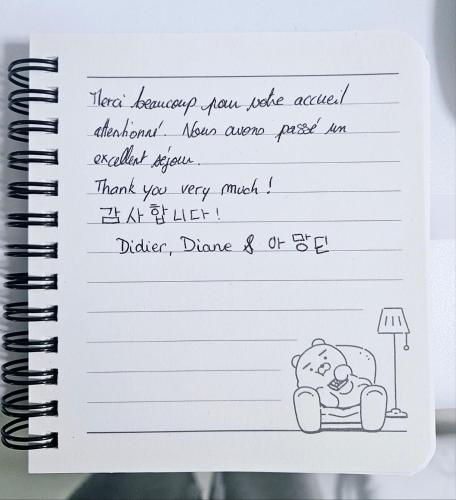 Merci beaucoup pour votre accueil
attentionné. Nous avons passé un
excellent séjour.
Thank you very much !
감사합니다!
Didier, Diane & 아망딘